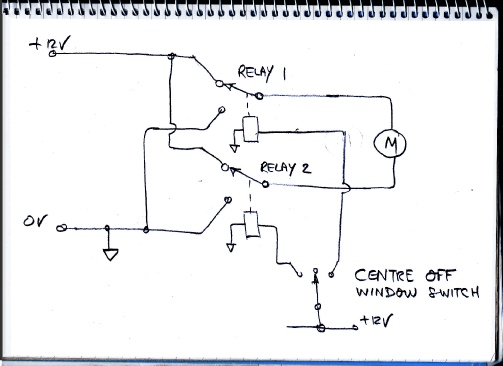 +12V
RELAY 1
M
RELAY 2
0V
CENTRE OFF
WINDOW SWITCH
+12V